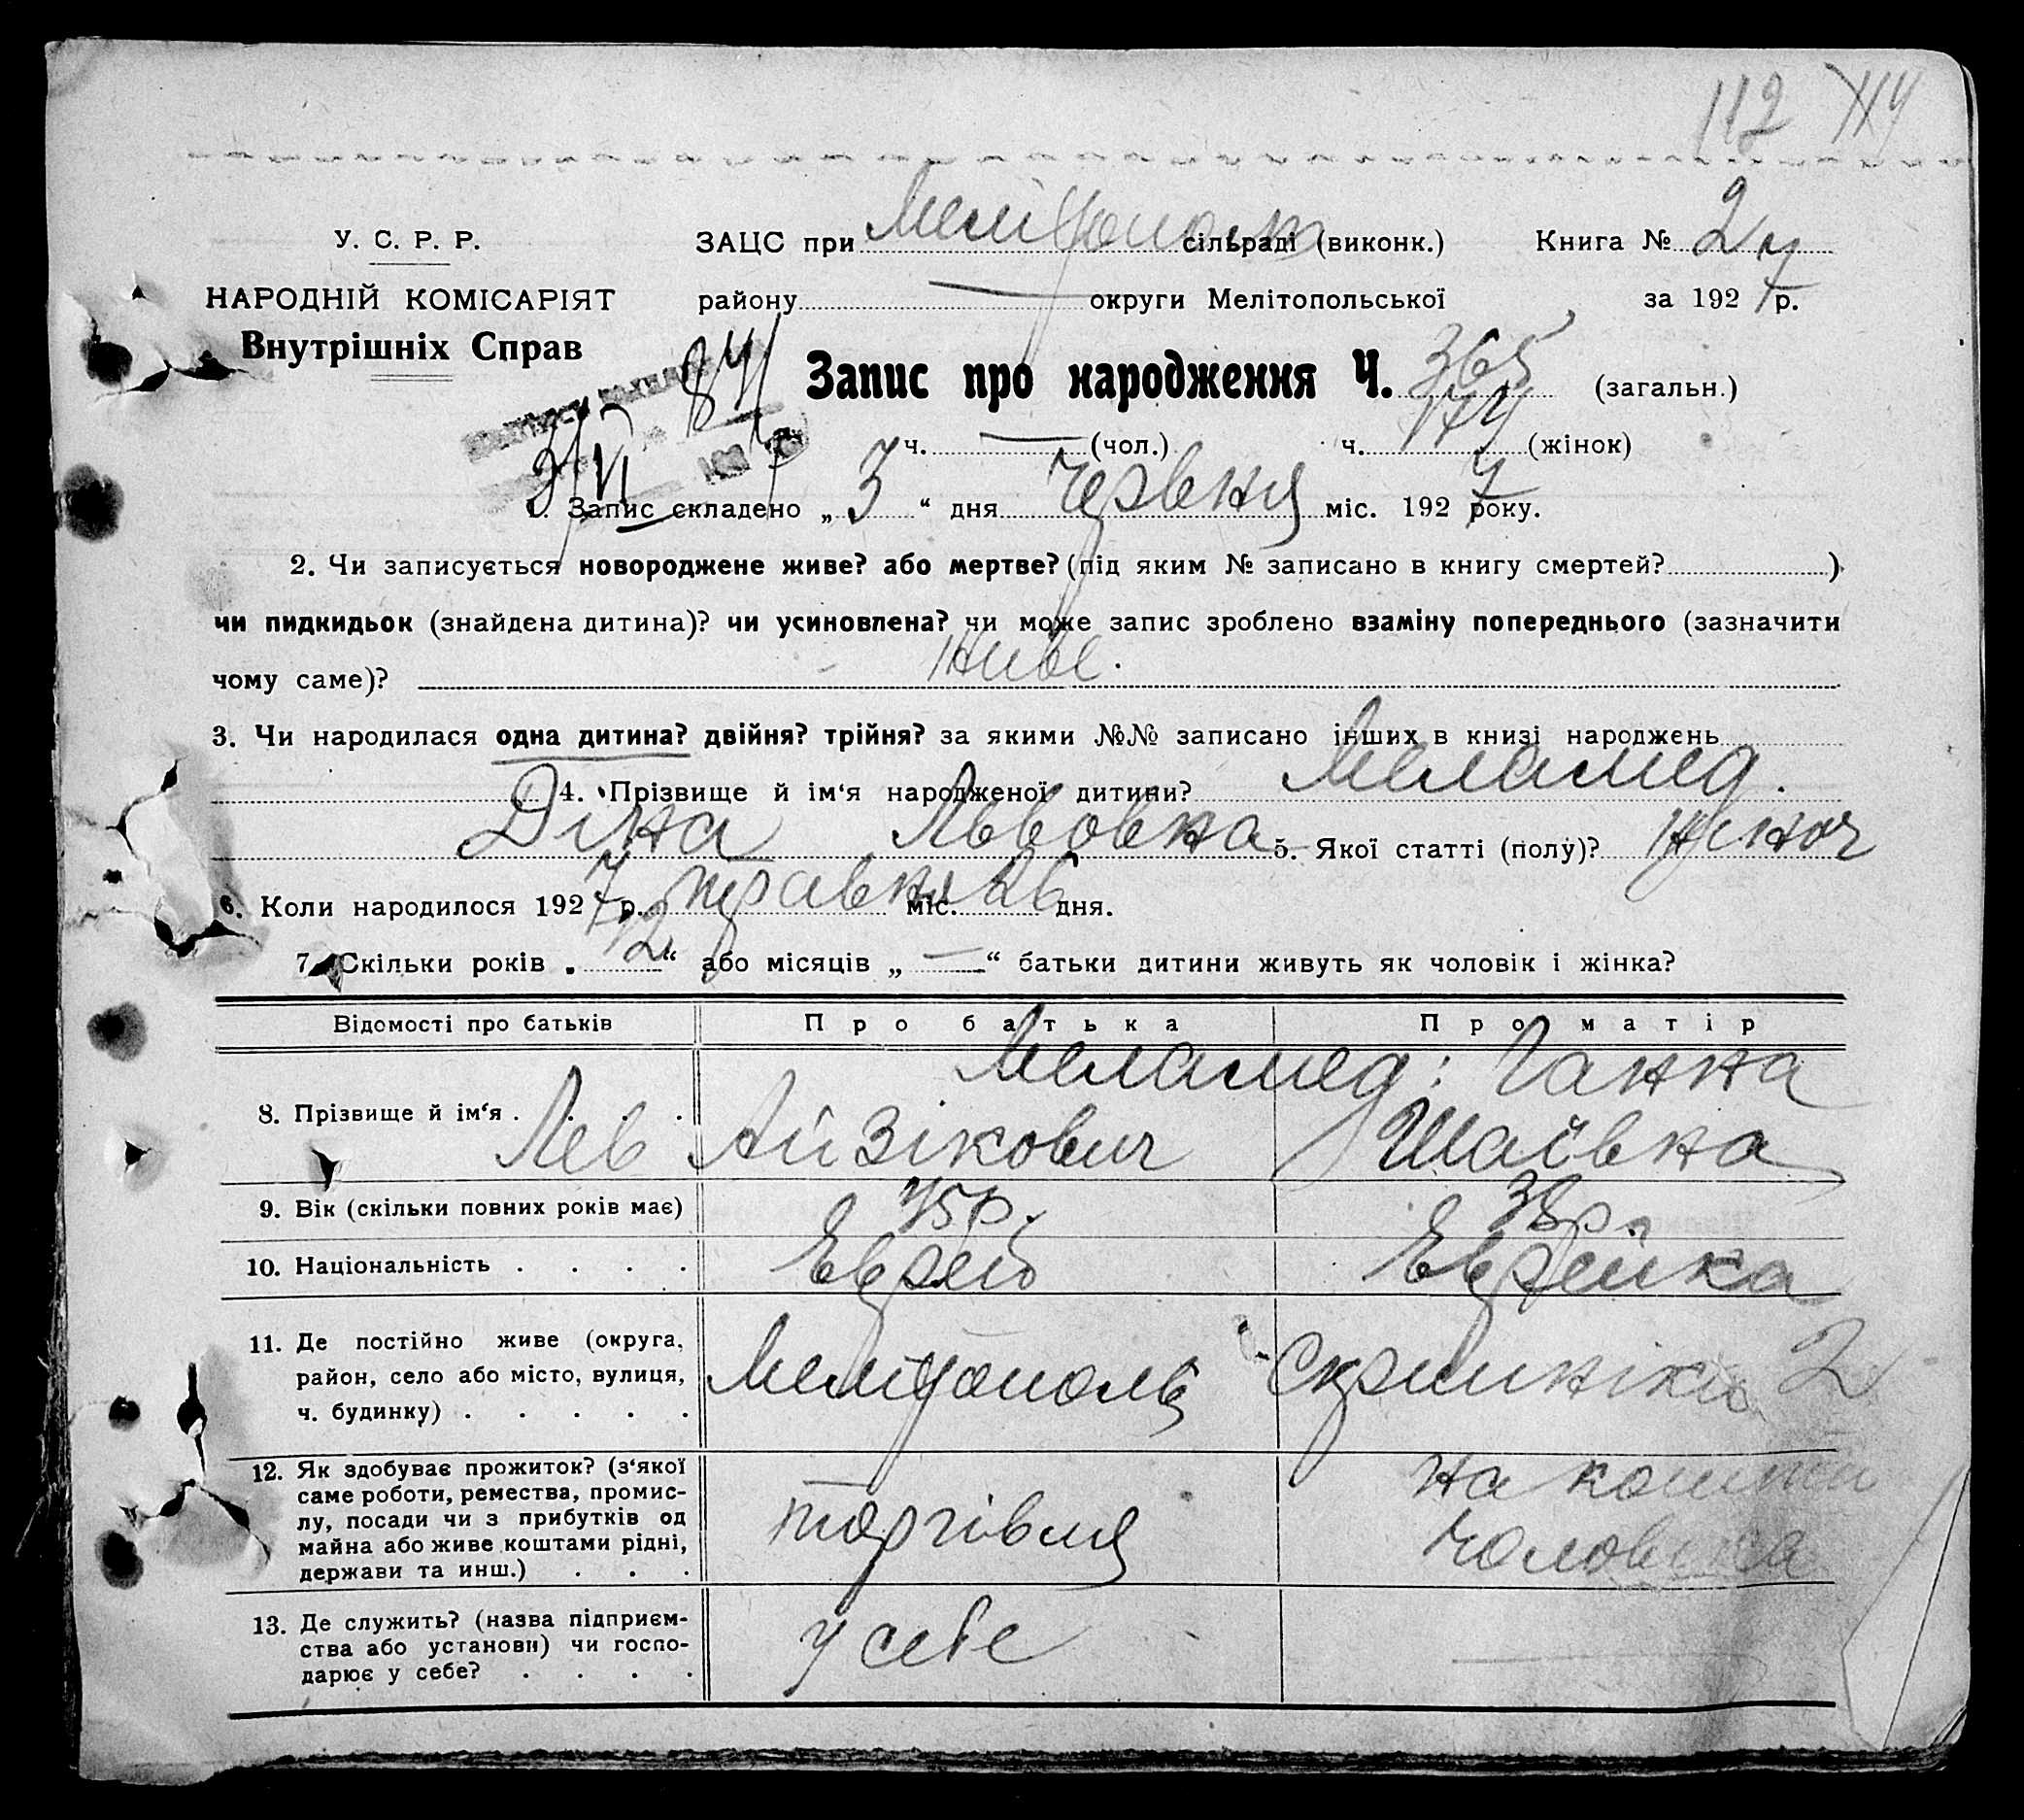 112 114
У. С. Р. Р.
НАРОДНІЙ КОМІСАРІЯТ
Внутрішніх Справ
ЗАЦС при Мелітопольськ сільраді (виконк.) Книга №
району — округи Мелітопольської за 1927 р.
Запис про народження Ч. 365 (загальн.)
ч. — (чол.) ч. 174 (жінок)
84
3/VI
1. Запис складено „ 3 “ дня Червня міс. 1927 року.
2. Чи записується новороджене живе? або мертве? (під яким № записано в книгу смертей? )
чи пидкидьок (знайдена дитина)? чи усиновлена? чи може запис зроблено взаміну попереднього (зазначити
чому саме)? Живе.
3. Чи народилася одна дитина? двійня? трійня? за якими №№ записано інших в книзі народжень
4. Прізвище й ім‘я народженої дитини? Меламед.
Діна Львовна 5. Якої статті (полу)? Жіноч
6. Коли народилося 1927 р. травня міс. 26 дня.
7. Скільки років „ “ або місяців „ — “ батьки дитини живуть як чоловік і жінка?
Відомості про батьків Про батька Про матір
Меламед: Ганна
8. Прізвище й ім‘я . . . . Лев Айзікович Шаївна
9. Вік (скільки повних років має) 45 р. 38 р.
10. Національність . . . . Еврей Еврейка
11. Де постійно живе (округа,
район, село або місто, вулиця,
ч. будинку) . . . . . Мелітополь 2
12. Як здобуває прожиток? (з‘якої
саме роботи, ремества, промис-
лу, посади чи з прибутків од
майна або живе коштами рідні,
держави та инш.) . . . торгівля на кошти
чоловіка
13. Де служить? (назва підприєм-
ства або установи) чи госпо-
дарює у себе? . . . . у себе